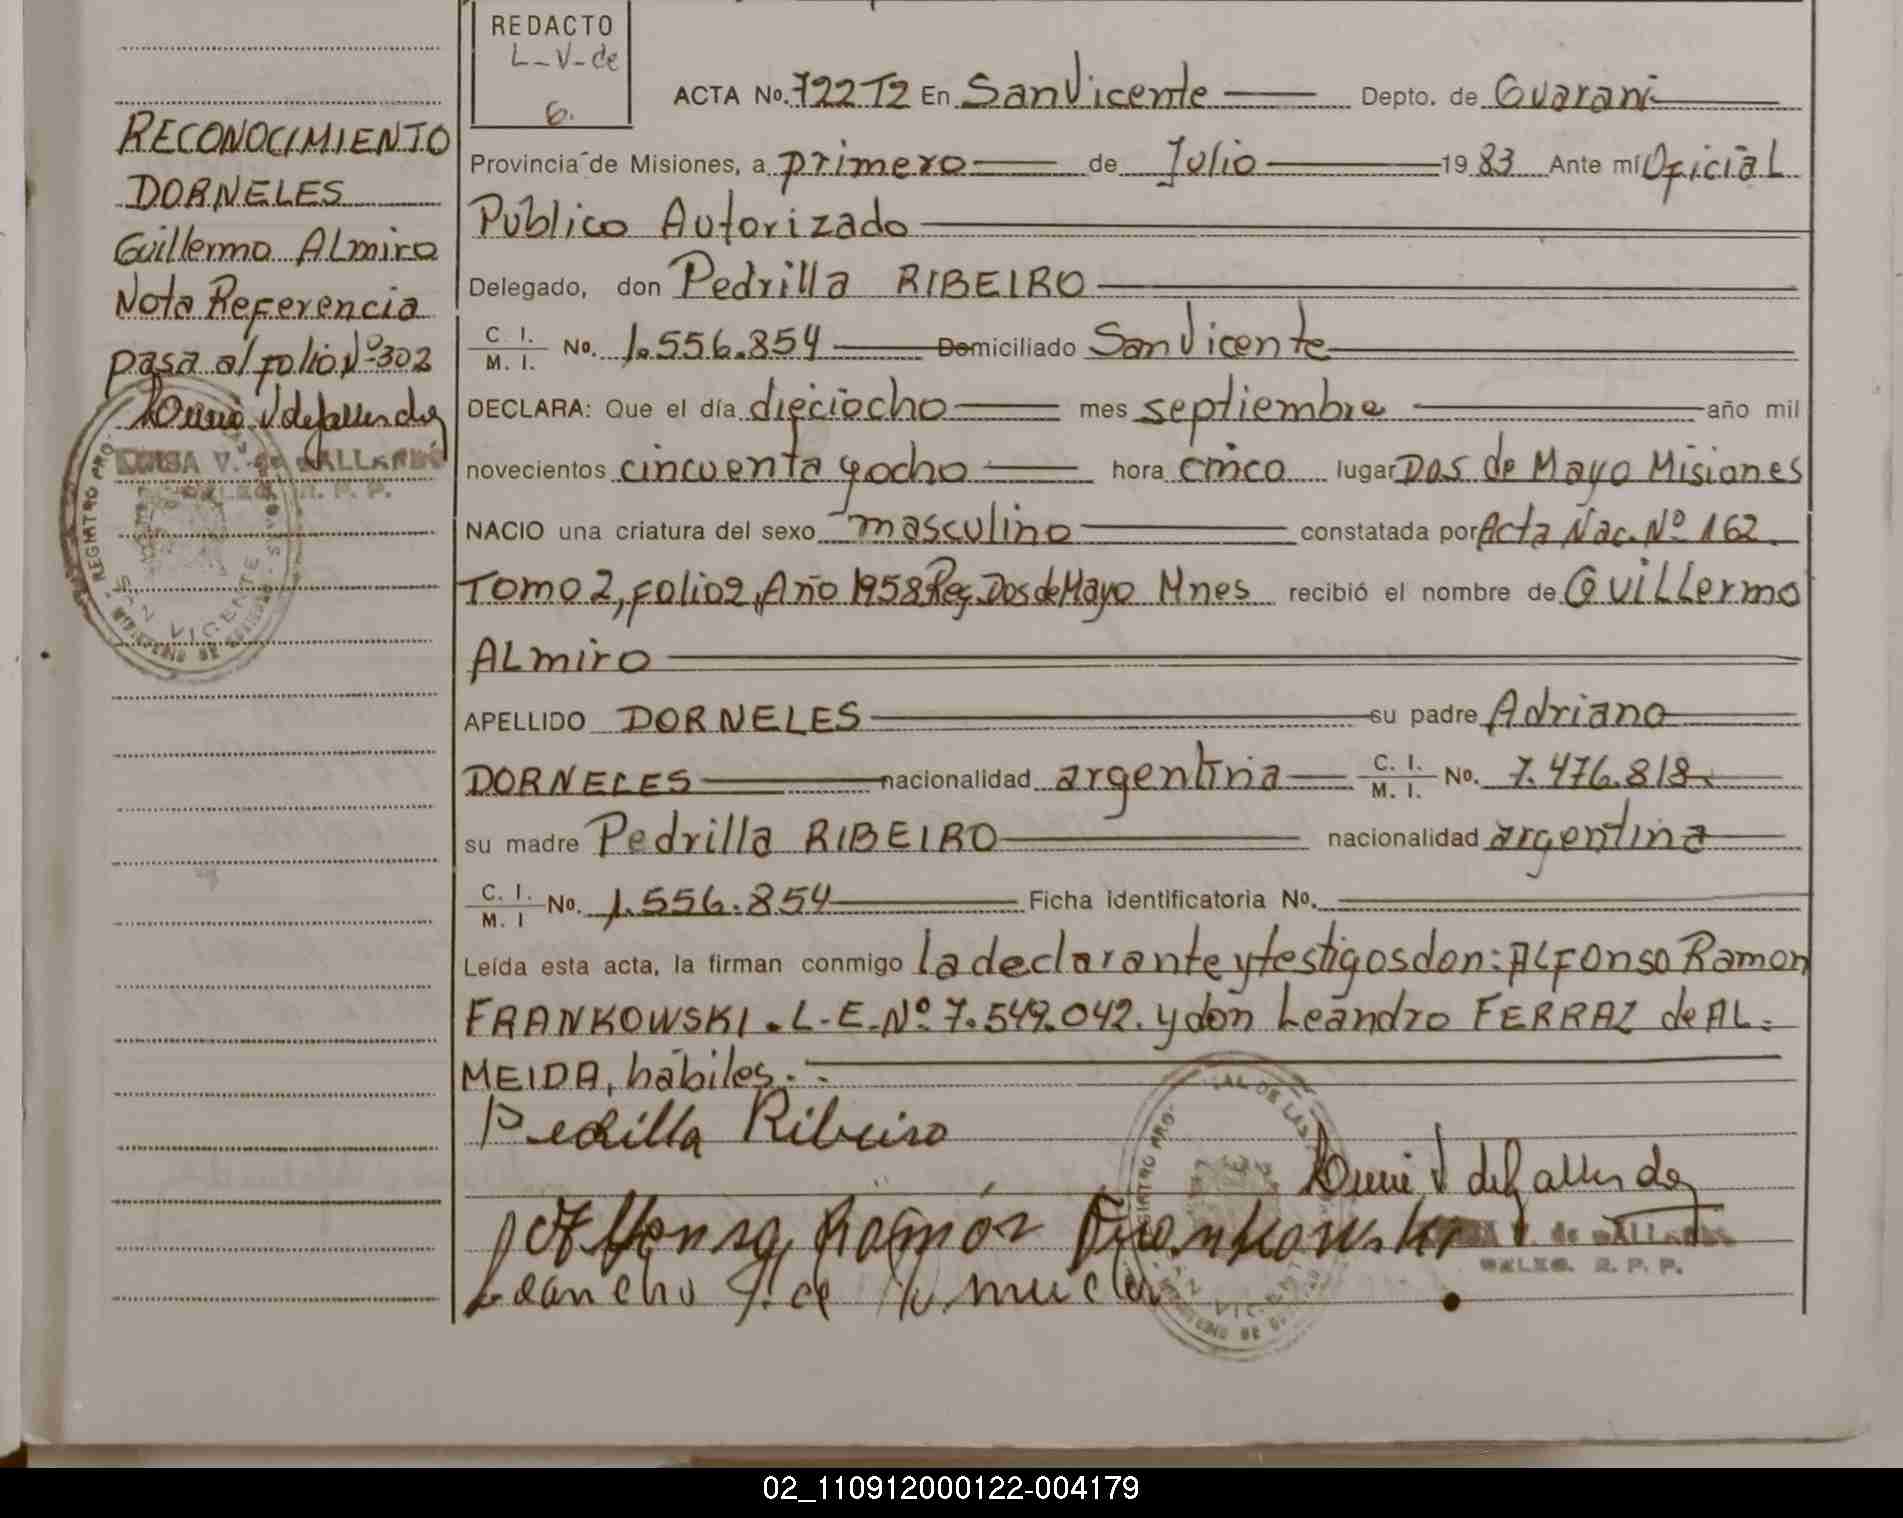 REDACTO
L-V-de
G.
ACTA No. 722T2 En San Vicente Depto. de Guarani
Provincia de Misiones, a primero de Julio 1983 Ante mí Oficial
Publico Autorizado
Delegado, don Pedrilla RIBEIRO
C. I. / M. I. No. 1.556.854 Domiciliado San Vicente
DECLARA: Que el día dieciocho mes septiembre año mil
novecientos cincuenta y ocho hora cinco lugar Dos de Mayo Misiones
NACIO una criatura del sexo masculino constatada por Acta Nac. Nº 162
Tomo 2, folio 2, Año 1958 Reg. Dos de Mayo Mnes recibió el nombre de Guillermo
ALmiro
APELLIDO DORNELES su padre Adriano
DORNELES nacionalidad argentina C. I. / M. I. No. 7.476.818
su madre Pedrilla RIBEIRO nacionalidad argentina
C. I. / M. I No. 1.556.854 Ficha identificatoria No.
Leída esta acta, la firman conmigo la declarante y testigos don: ALFonso Ramon
FRANKOWSKI. L.E. Nº 7.549.042. y don Leandro FERRAZ de AL=
MEIDA, hábiles.
Pedrilla Ribeiro
Alfonso Ramón Frankowski
V. de GALLARDO
DELEG. R. P. P.
SAN VICENTE
RECONOCIMIENTO
DORNELES
Guillermo ALmiro
Nota Referencia
pasa al folio Nº 302
LUISA V. de GALLARDO
DELEG. R. P. P.
REGISTRO PRO
SAN VICENTE
02_110912000122-004179